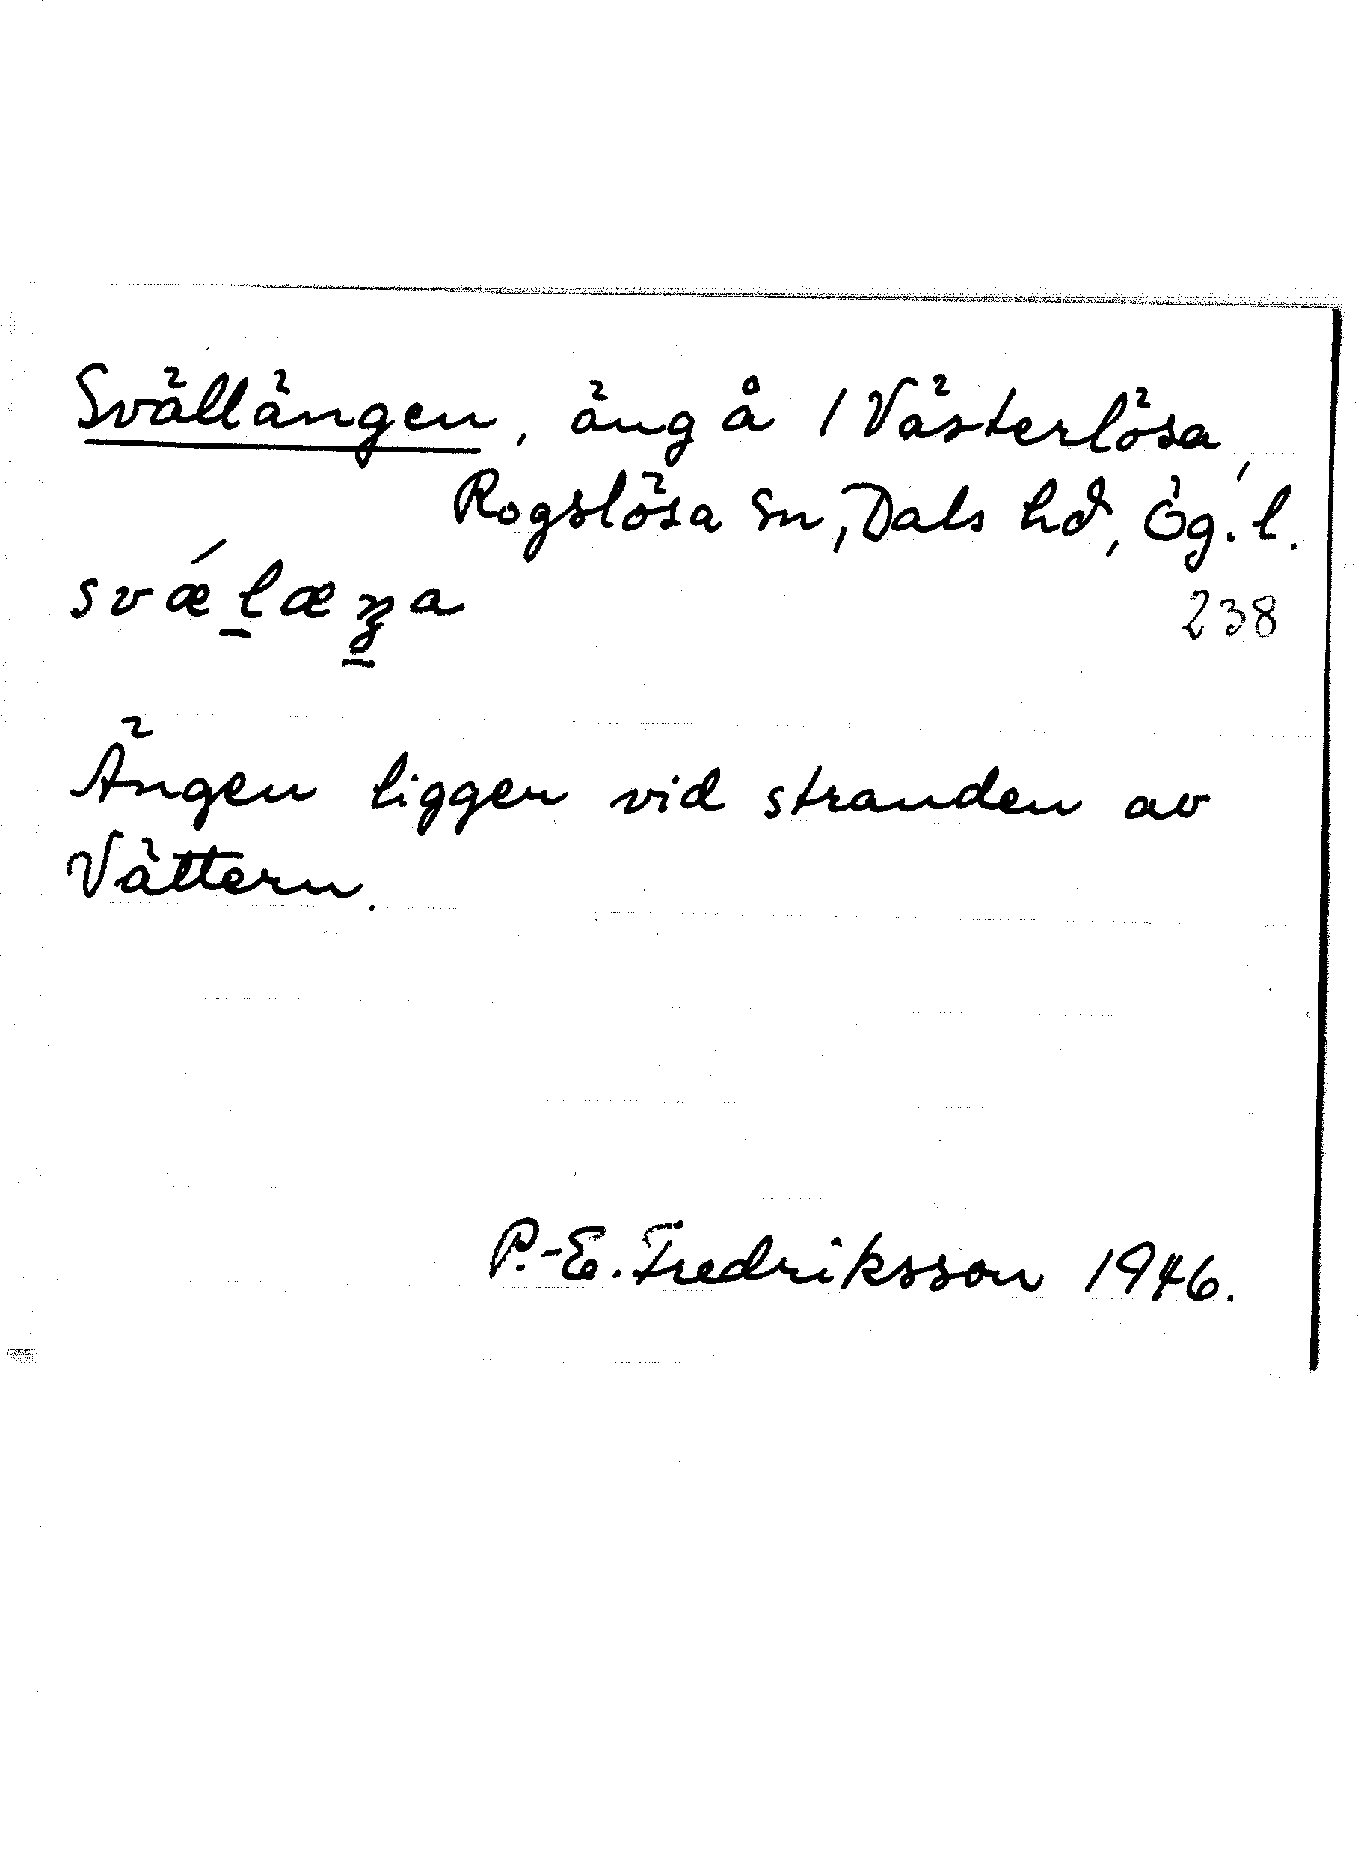 Svällängen, äng å 1 Västerlösa,
Rogslösa sn, Dals hd, Ög. l.
svǽl̠æŋ̠a
238
Ängen ligger vid stranden av
Vättern.
P.-E. Fredriksson 1946.